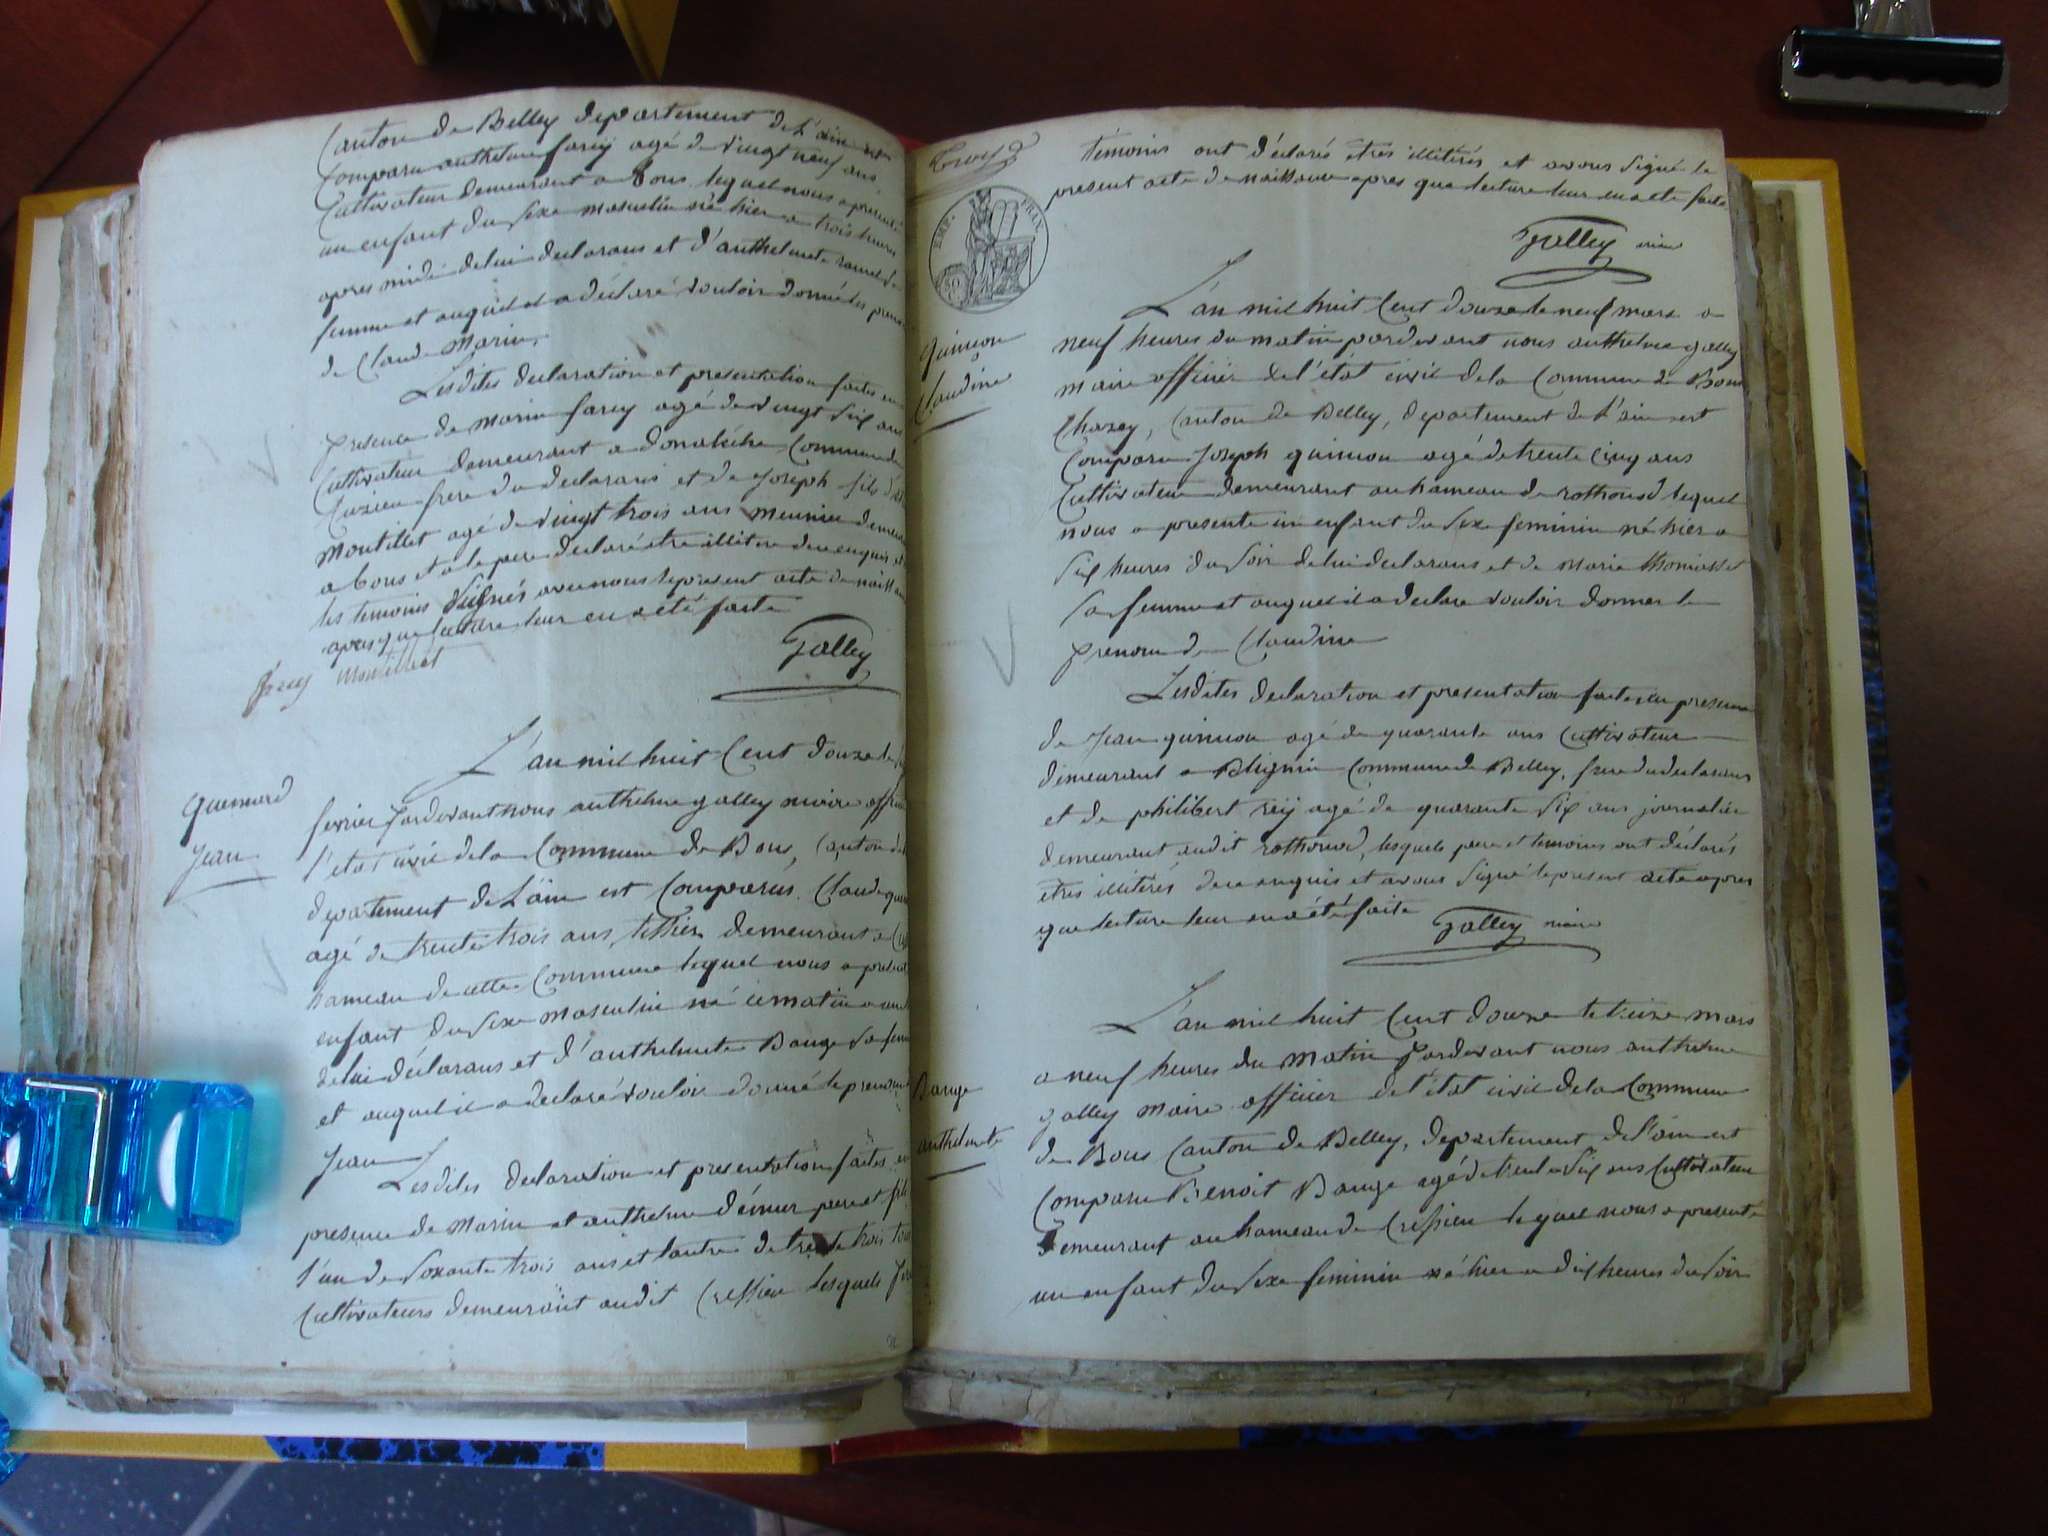 Canton de Belley departement de L'ain est
Comparu anthelme farcy agé de vingt neuf ans
Cultivateur demeurant a Bons lequel nous a presenté
un enfant du sexe masculin né hier a trois heures
apres midi de lui declarans et d'anthelmete
femme et auquel il a déclaré vouloir donné les
de Claude Marin.
Lesdites declaration et presentation faites en
presence de marin farcy agé de vingt six ans
Cultivateur demeurant a Commune de
Cuzieu frere du declarans et de Joseph fils
Montillet agé de vingt trois ans meunier
a bons et a le pere declaré etre illitere de ce enquis et
les temoins signés avec nous le present acte de
apres que lecture leur en a eté faite
farcy Montillet
Galley
L'an mil huit Cent douze le
quennard
Jean
fevrier pardevant nous anthelme galley maire
l'etat civil de la Commune de Bons, Canton de
departement de L'ain est Comparus Claude
agé de trente trois ans, tissier demeurant a
hameau de cette Commune lequel nous a
enfant du sexe masculin né ce matin a
de lui déclarans et d'anthelmete Bauge sa
et auquel il a declaré vouloir donné le prenom
Jean
Lesdites declaration et presentation faites en
presence de marin et anthelme pere et fils
l'un de soxante trois ans et lautre de trente trois
Cultivateurs demeurant audit Cressieu lesquels
témoins ont d'éclarés etres illitérés et avons signé le
present acte de naissance apres que lecture leur en a eté faite
EMP. FRAN.
50
Galley maire
quinson
Claudine
L'an mil huit Cent douze le neuf mars a
neuf heures du matin pardevant nous anthelme galley
maire officier de l'état civil de la Commune de Bons
Chazey, Canton de Belley, departement de L'ain est
Comparu Joseph quinson agé de trente cinq ans
Cultivateur demeurant au hameau de rothonod lequel
nous a presenté un enfant du sexe feminin né hier a
six heures du soir de lui declarans et de Marie thomasset
sa femme et auquel il a declare vouloir donner le
prenom de Claudine
Lesdites declaration et presentation faites en presence
de Jean quinson agé de quarante ans Cultivateur
demeurant a Commune de Belley, frere du declarans
et de philibert rey agé de quarante six ans journalier
demeurant audit rothonod, lesquels pere et temoins ont déclarés
etres illitérés de ce enquis et avons signé le present acte apres
que lecture leur en a été faite
Galley maire
Bauge
anthelmete
L'an mil huit Cent douze le treize mars
a neuf heures du matin Pardevant nous anthelme
galley maire officier de l'état civil de la Commune
de Bons Canton de Belley, departement de l'ain est
Comparu Benoit Bauge agé de trente six ans Cultivateur
demeurant au hameau de Cressieu lequel nous a presenté
un enfant du sexe feminin né hier a dix heures du soir